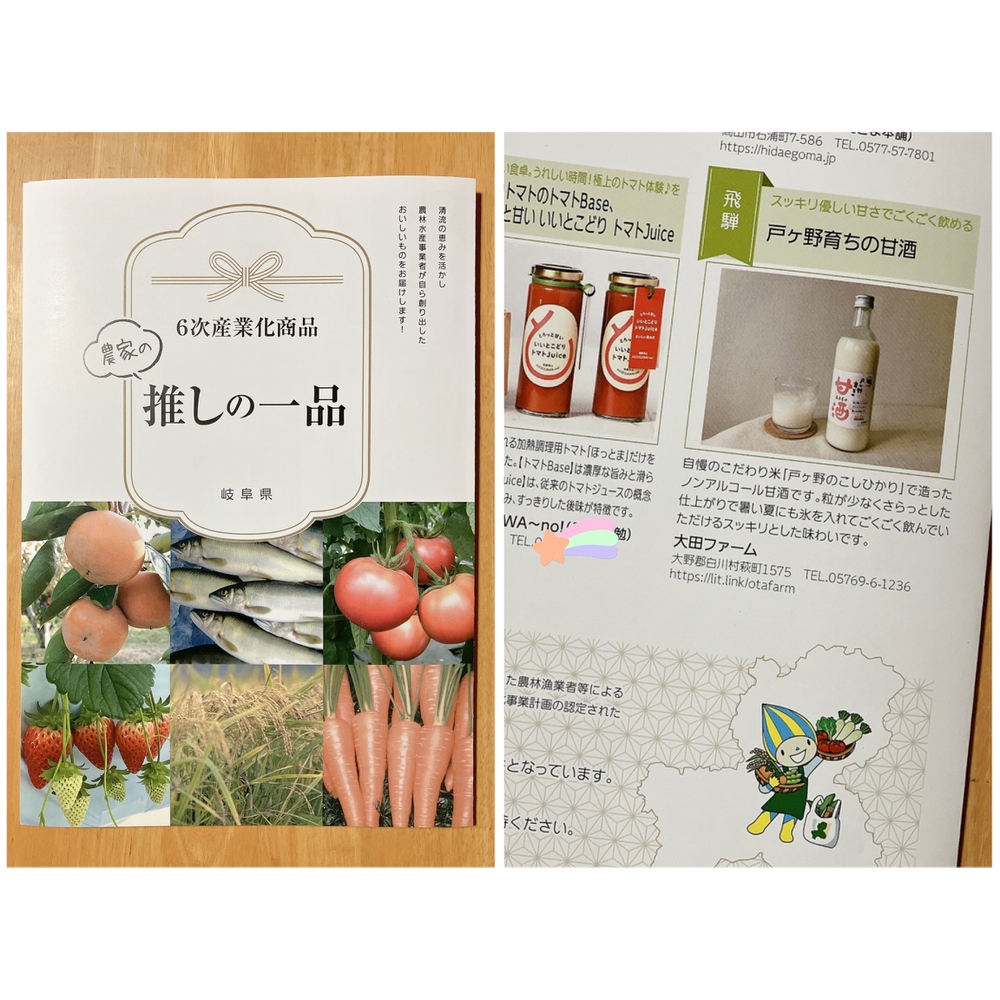 清流の恵みを活かし
農林水産事業者が自ら創り出した
おいしいものをお届けします！
6次産業化商品
農家の
推しの一品
岐阜県
高山市石浦町7-586 TEL.0577-57-7801
https://hidaegoma.jp
い食卓。うれしい時間！極上のトマト体験♪を
トマトのトマトBase、
と甘い いいとこどり トマトJuice
とろっと甘い
いいとこどり
トマトJuice
とろっと甘い
いいとこどり
トマトJuice
いいとこどり
トマトJuice
れる加熱調理用トマト「ほっとま」だけを
た。【トマトBase】は濃厚な旨みと滑ら
uice】は、従来のトマトジュースの概念
み、すっきりした後味が特徴です。
WA〜no!(
勉)
TEL.0
飛騨
スッキリ優しい甘さでごくごく飲める
戸ヶ野育ちの甘酒
甘酒
自慢のこだわり米「戸ヶ野のこしひかり」で造った
ノンアルコール甘酒です。粒が少なくさらっとした
仕上がりで暑い夏にも氷を入れてごくごく飲んでい
ただけるスッキリとした味わいです。
大田ファーム
大野郡白川村萩町1575 TEL.05769-6-1236
https://lit.link/otafarm
た農林漁業者等による
事業計画の認定された
となっています。
待ください。